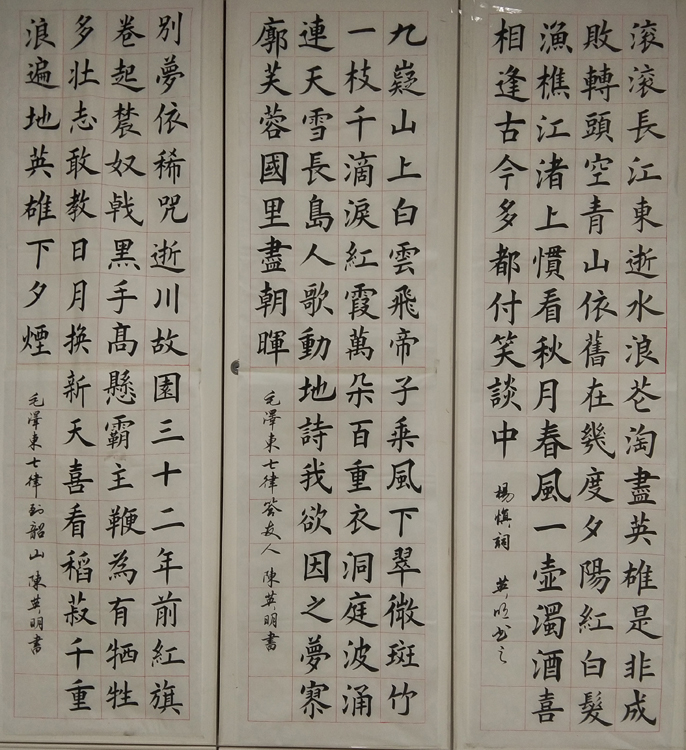 滚滚長江東逝水浪花淘盡英雄是非成
敗轉頭空青山依舊在幾度夕陽紅白髮
漁樵江渚上慣看秋月春風一壺濁酒喜
相逢古今多都付笑談中
楊慎詞 英明書之
九嶷山上白雲飛帝子乘風下翠微斑竹
一枝千滴淚紅霞萬朵百重衣洞庭波涌
連天雪長島人歌動地詩我欲因之夢寥
廓芙蓉國里盡朝暉
毛澤東七律答友人 陳英明書
別夢依稀咒逝川故園三十二年前紅旗
卷起農奴戟黑手高懸霸主鞭為有牺牲
多壯志敢教日月換新天喜看稻菽千重
浪遍地英雄下夕煙
毛澤東七律到韶山 陳英明書